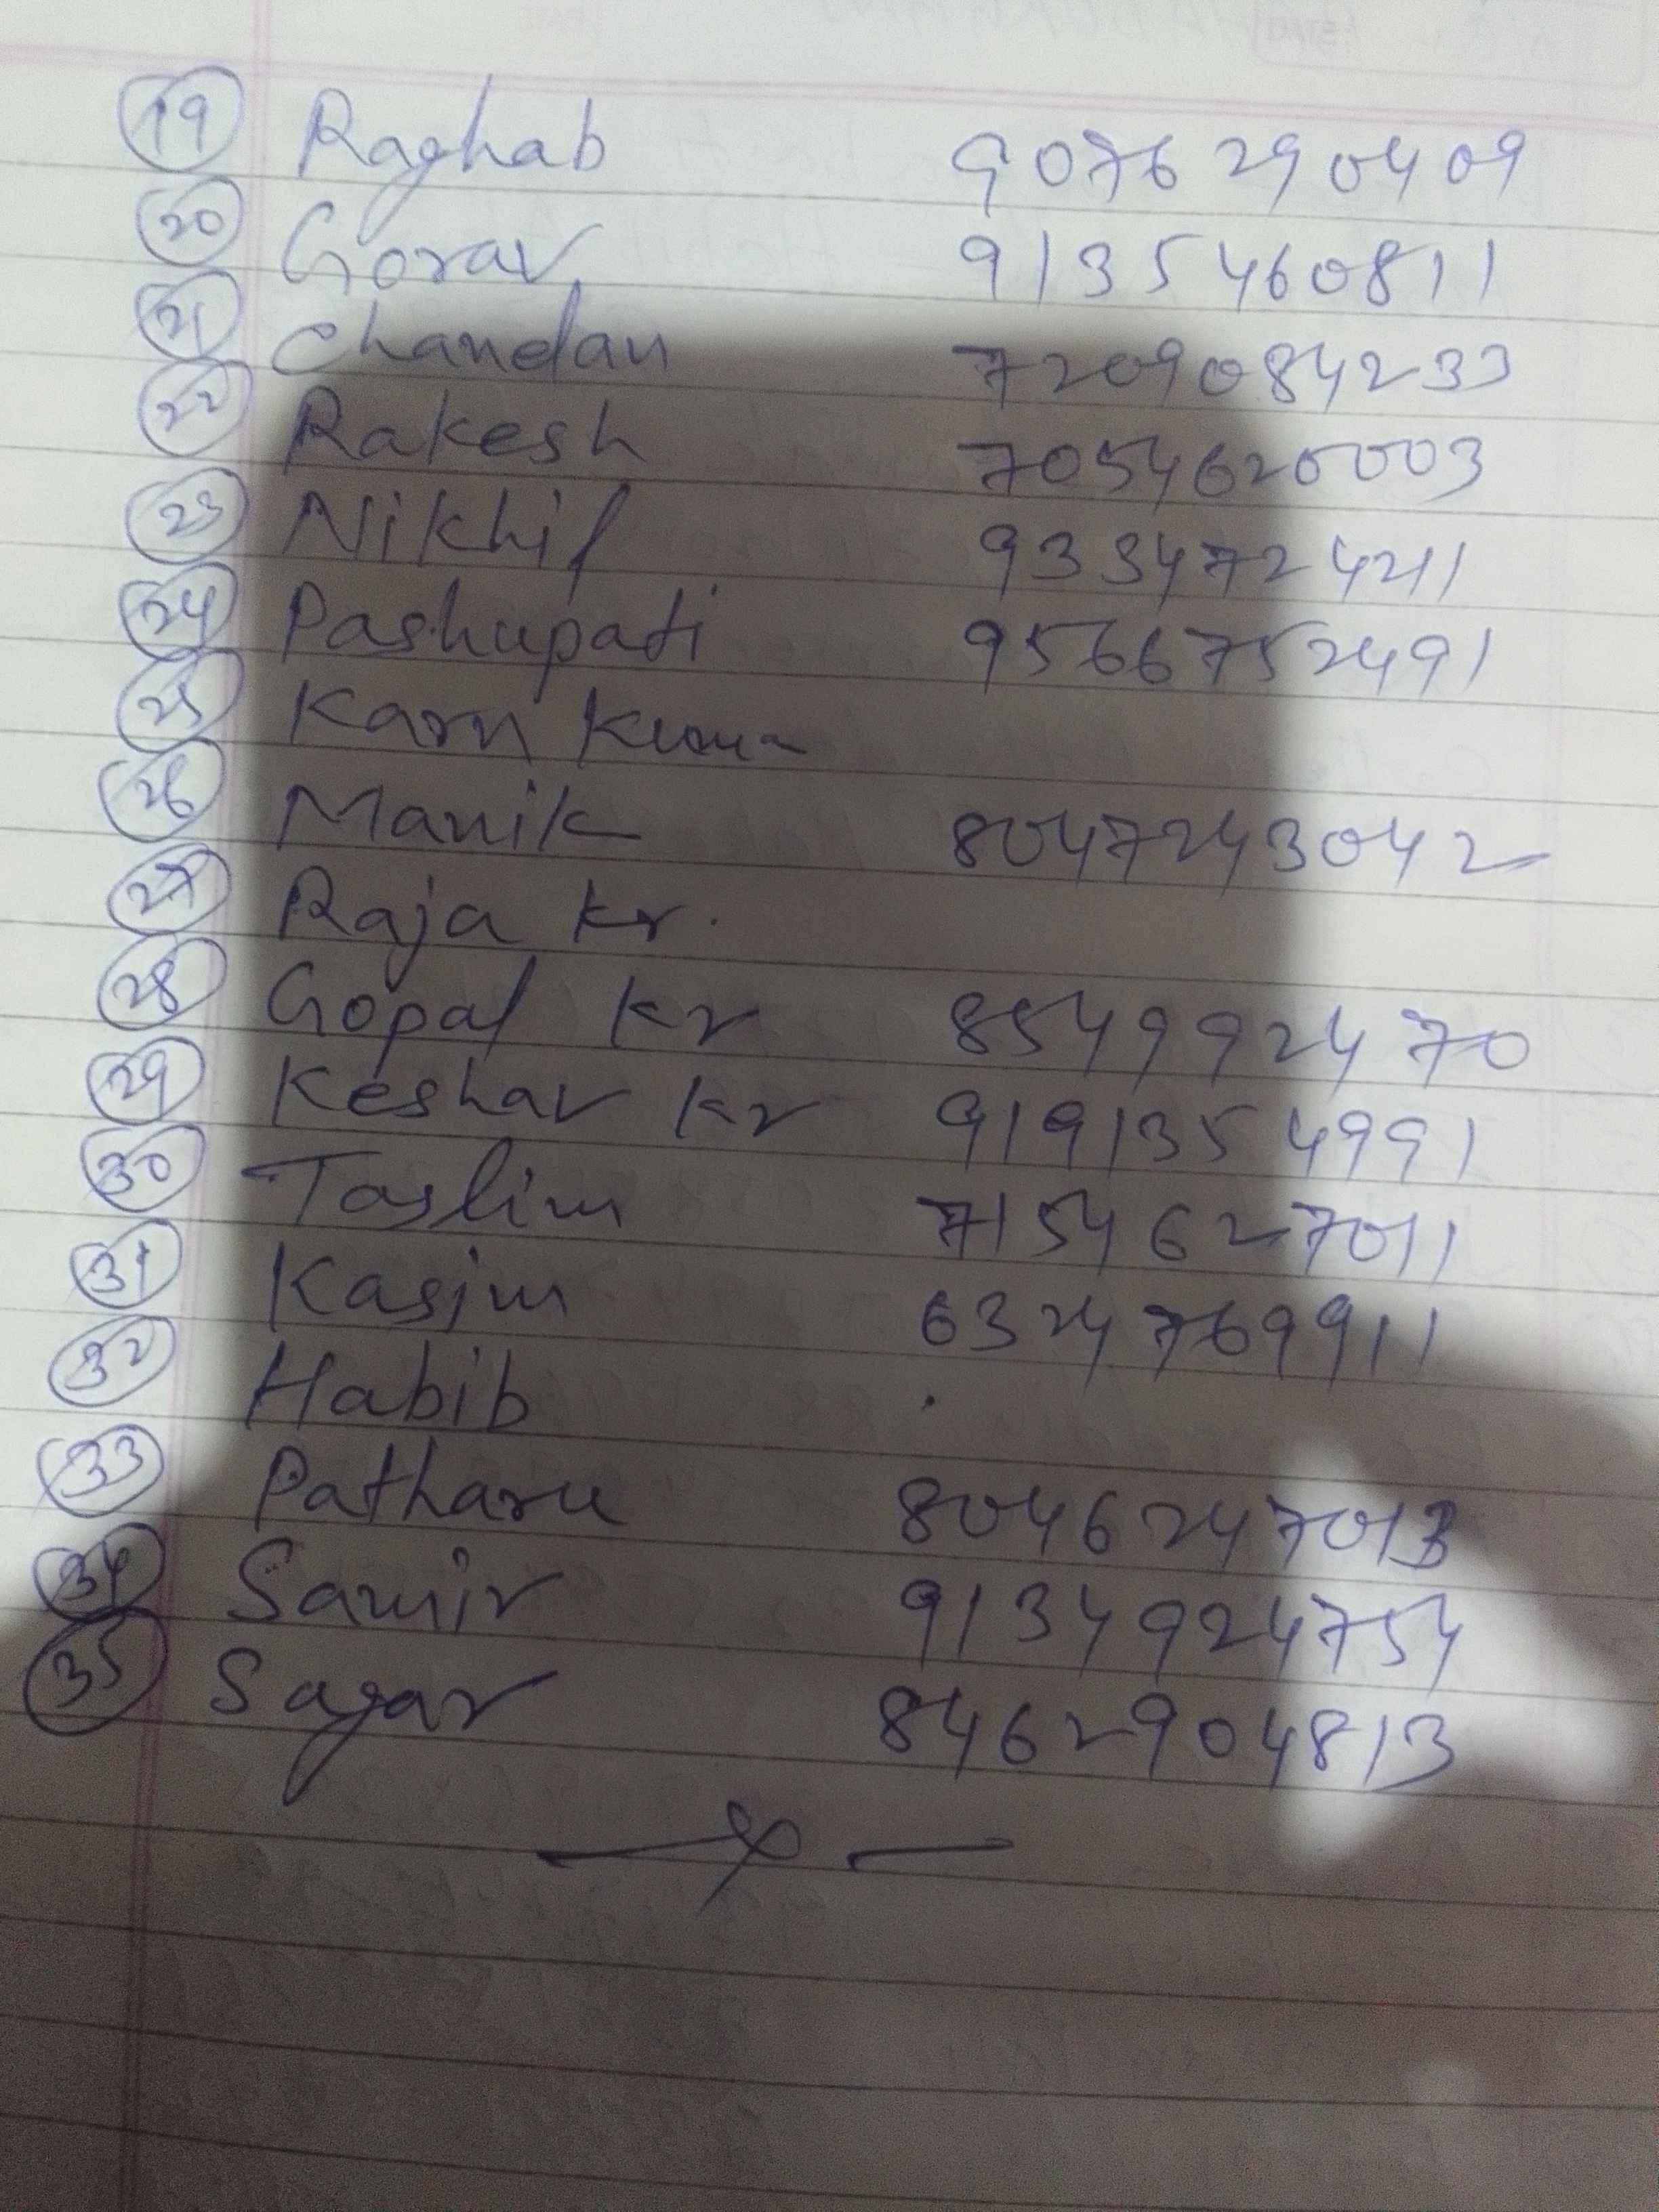 19 Raghab 9076290409
20 Gorav 9135460811
21 Chandan 7209084233
22 Rakesh 7054620003
23 Nikhil 9334724211
24 Pashupati 9566752491
25 Karn Kumar
26 Manik 8047243042
27 Raja kr.
28 Gopal kr 8549992470
29 Keshav kr 9191354991
30 Taslim 7154627011
31 Kasim 6324769911
32 Habib
33 Patharu 8046247013
34 Samir 9134924754
35 Sagar 8462904813